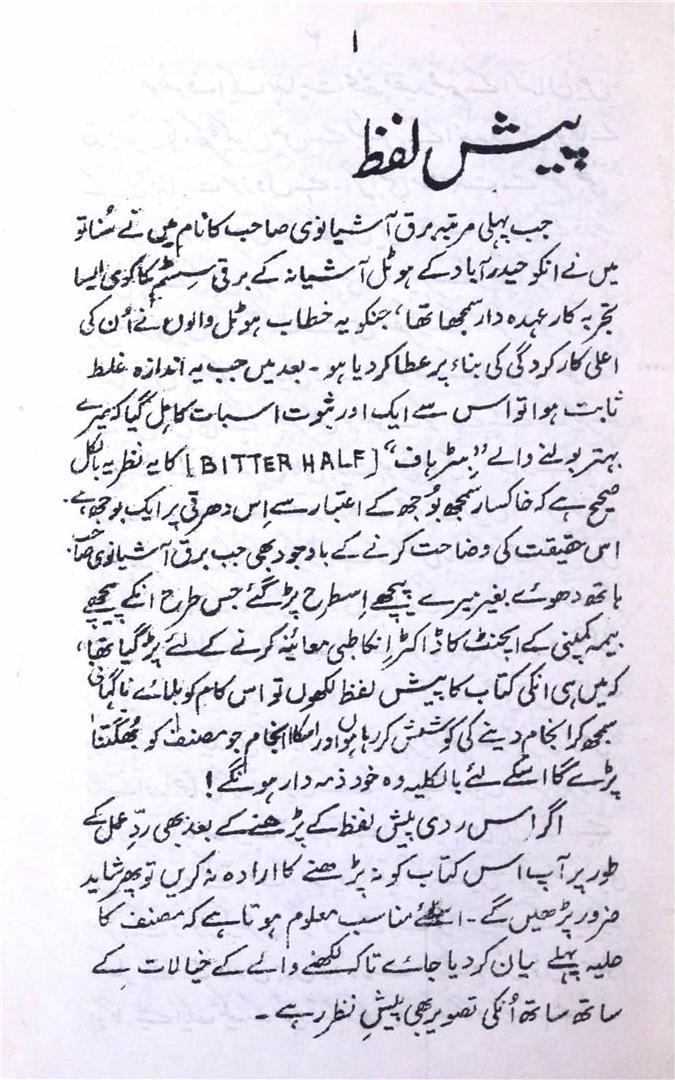 ۱
پیش لفظ
جب پہلی مرتبہ برق آشیانوی صاحب کا نام میں نے سُنا تو
میں نے انکو حیدرآباد کے ہوٹل آشیانہ کے برقی سسٹم کا کوئی ایسا
تجربہ کار عہدہ دار سمجھا تھا، جنکو یہ خطاب ہوٹل والوں نے اُن کی
اعلیٰ کارکردگی کی بناء پر عطا کر دیا ہو ۔ بعد میں جب یہ اندازہ غلط
ثابت ہوا تو اس سے ایک اور ثبوت اس بات کا مل گیا کہ میرے
بہتر بولنے والے "بِٹر ہاف" [BITTER HALF] کا یہ نظریہ بالکل
صحیح ہے کہ خاکسار سمجھ بُوجھ کے اعتبار سے اِس دھرتی پر ایک بوجھ ہے.
اس حقیقت کی وضاحت کرنے کے باوجود بھی جب برق آشیانوی صاحب
ہاتھ دھوئے بغیر میرے پیچھے اِسطرح پڑ گئے جس طرح انکے پیچھے
بیمہ کمپنی کے ایجنٹ کا ڈاکٹر اِنکا طبی معائنہ کرنے کے لئے پڑ گیا تھا،
کہ میں ہی انکی کتاب کا پیش لفظ لکھوں تو اس کام کو بلائے ناگہانی
سمجھ کر انجام دینے کی کوشش کر رہا ہوں اور اسکا انجام جو مصنف کو بھُگتنا
پڑے گا اسکے لئے بالکلیہ وہ خود ذمہ دار ہونگے !
اگر اس ردی پیش لفظ کے پڑھنے کے بعد بھی ردِّ عمل کے
طور پر آپ اس کتاب کو نہ پڑھنے کا ارادہ نہ کریں تو پھر شاید
ضرور پڑھیں گے ۔ اسلئے مناسب معلوم ہوتا ہے کہ مصنف کا
حلیہ پہلے بیان کر دیا جائے تاکہ لکھنے والے کے خیالات کے
ساتھ ساتھ اُنکی تصویر بھی پیشِ نظر رہے ۔